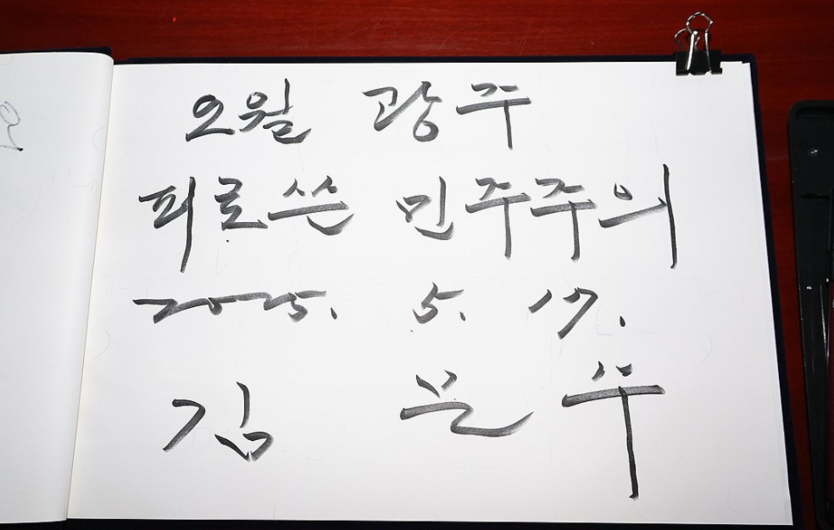 오월 광주
피로쓴 민주주의
2025. 5. 17.
김 문수